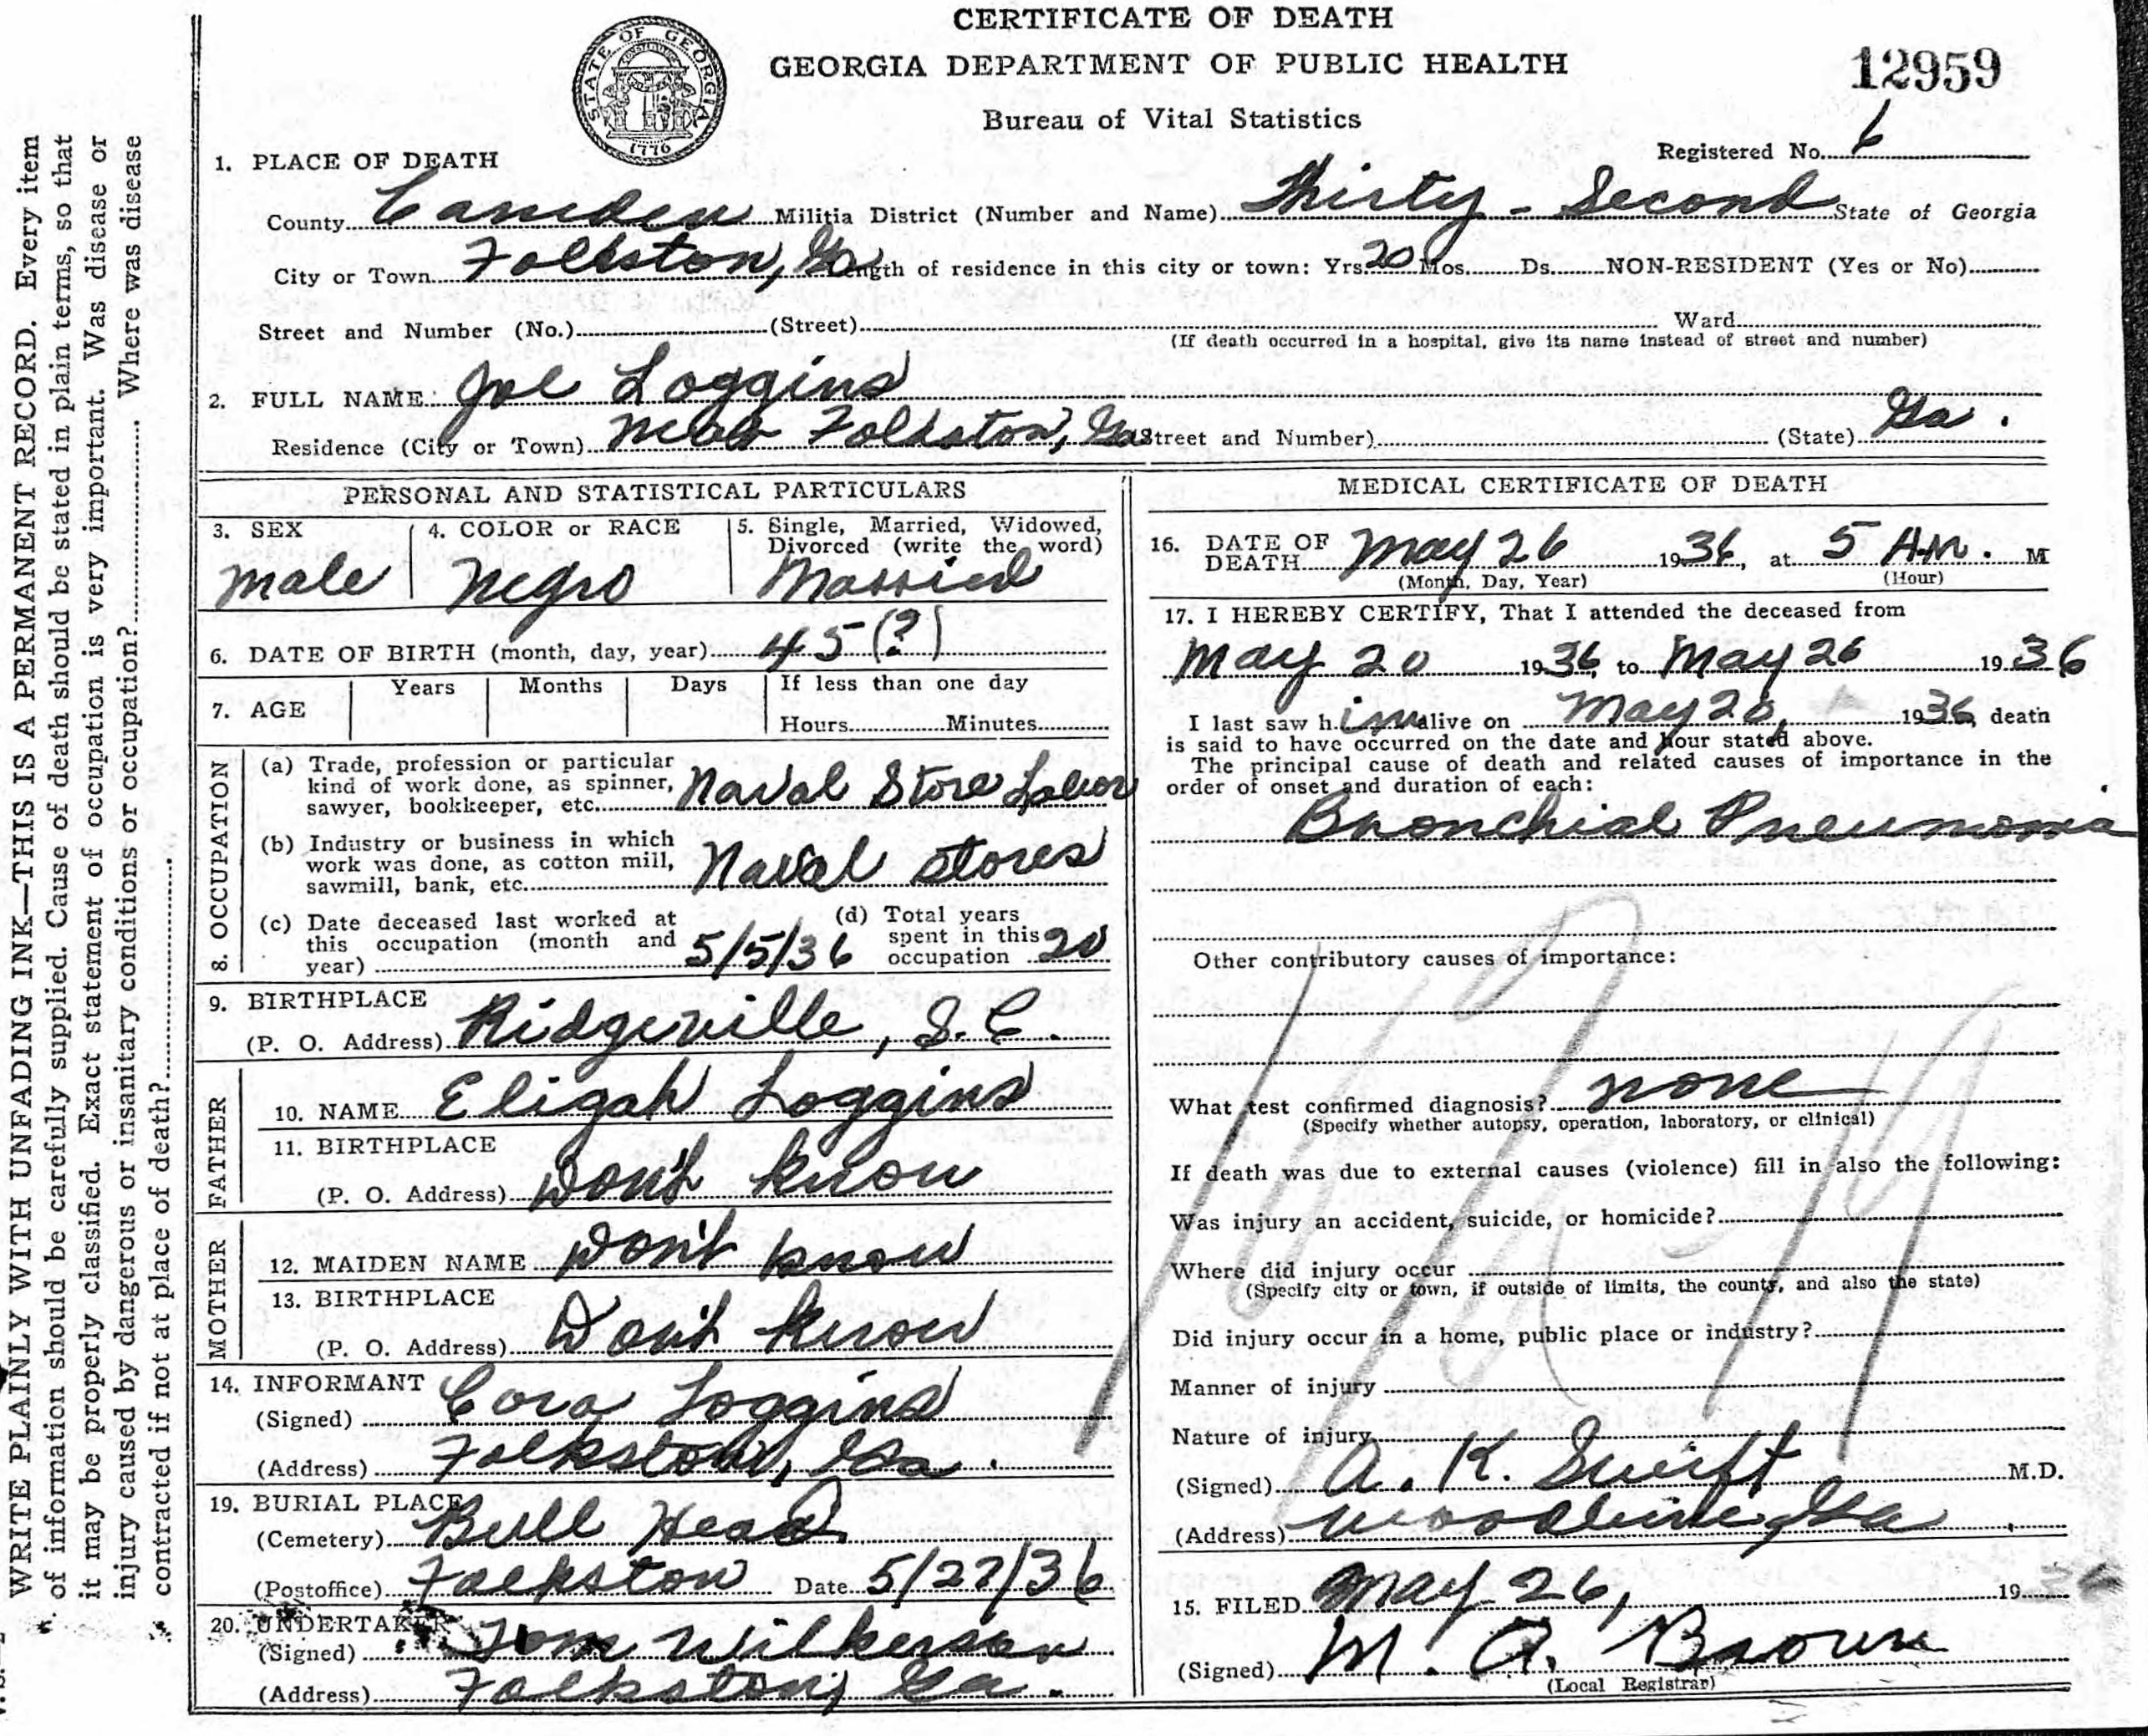 CERTIFICATE OF DEATH
GEORGIA DEPARTMENT OF PUBLIC HEALTH
Bureau of Vital Statistics
12959
STATE OF GEORGIA
1776
Registered No. 6
1. PLACE OF DEATH
County Camden Militia District (Number and Name) Thirty - Second State of Georgia
City or Town Folkston, Ga Length of residence in this city or town: Yrs. 20 Mos. Ds. NON-RESIDENT (Yes or No)
Street and Number (No.) (Street) Ward
(If death occurred in a hospital, give its name instead of street and number)
2. FULL NAME: Joe Loggins
Residence (City or Town) Near Folkston, Ga Street and Number) (State) Ga.
PERSONAL AND STATISTICAL PARTICULARS
3. SEX
male
4. COLOR or RACE
Negro
5. Single, Married, Widowed,
Divorced (write the word)
Married
6. DATE OF BIRTH (month, day, year) 45 (?)
7. AGE
Years Months Days If less than one day
Hours Minutes
8. OCCUPATION
(a) Trade, profession or particular
kind of work done, as spinner,
sawyer, bookkeeper, etc. Naval Store Labor
(b) Industry or business in which
work was done, as cotton mill,
sawmill, bank, etc. Naval stores
(c) Date deceased last worked at
this occupation (month and
year) 5/5/36
(d) Total years
spent in this
occupation 20
9. BIRTHPLACE
(P. O. Address) Ridgeville, S.C.
FATHER
10. NAME Eligah Loggins
11. BIRTHPLACE
(P. O. Address) Don't know
MOTHER
12. MAIDEN NAME Don't know
13. BIRTHPLACE
(P. O. Address) Don't know
14. INFORMANT
(Signed) Cora Loggins
(Address) Folkston, Ga.
19. BURIAL PLACE
(Cemetery) Bull Head
(Postoffice) Folkston Date 5/27/36
20. UNDERTAKER
(Signed) Tom Wilkerson
(Address) Folkston, Ga.
MEDICAL CERTIFICATE OF DEATH
16. DATE OF
DEATH May 26 1936, at 5 A.M. M
(Month, Day, Year) (Hour)
17. I HEREBY CERTIFY, That I attended the deceased from
May 20 1936, to May 26 1936
I last saw him alive on May 20, 1936, death
is said to have occurred on the date and hour stated above.
The principal cause of death and related causes of importance in the
order of onset and duration of each:
Bronchial Pneumonia
Other contributory causes of importance:
What test confirmed diagnosis? none
(Specify whether autopsy, operation, laboratory, or clinical)
If death was due to external causes (violence) fill in also the following:
Was injury an accident, suicide, or homicide?
Where did injury occur
(Specify city or town, if outside of limits, the county, and also the state)
Did injury occur in a home, public place or industry?
Manner of injury
Nature of injury
(Signed) A. K. Swift M.D.
(Address) Woodbine, Ga
15. FILED May 26, 1936
(Signed) M. A. Brown
(Local Registrar)
WRITE PLAINLY WITH UNFADING INK—THIS IS A PERMANENT RECORD. Every item
of information should be carefully supplied. Cause of death should be stated in plain terms, so that
it may be properly classified. Exact statement of occupation is very important. Was disease or
injury caused by dangerous or insanitary conditions or occupation? Where was disease
contracted if not at place of death?